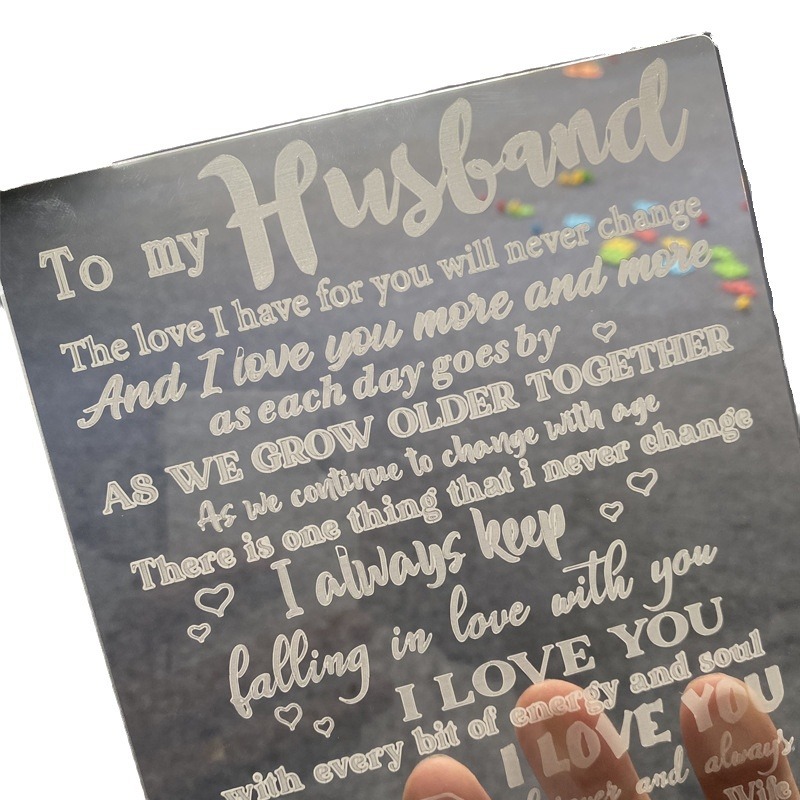 To my Husband
The love I have for you will never change
And I love you more and more
as each day goes by
AS WE GROW OLDER TOGETHER
As we continue to change with age
There is one thing that i never change
I always keep
falling in love with you
I LOVE YOU
with every bit of energy and soul
I LOVE YOU
and always
Wife